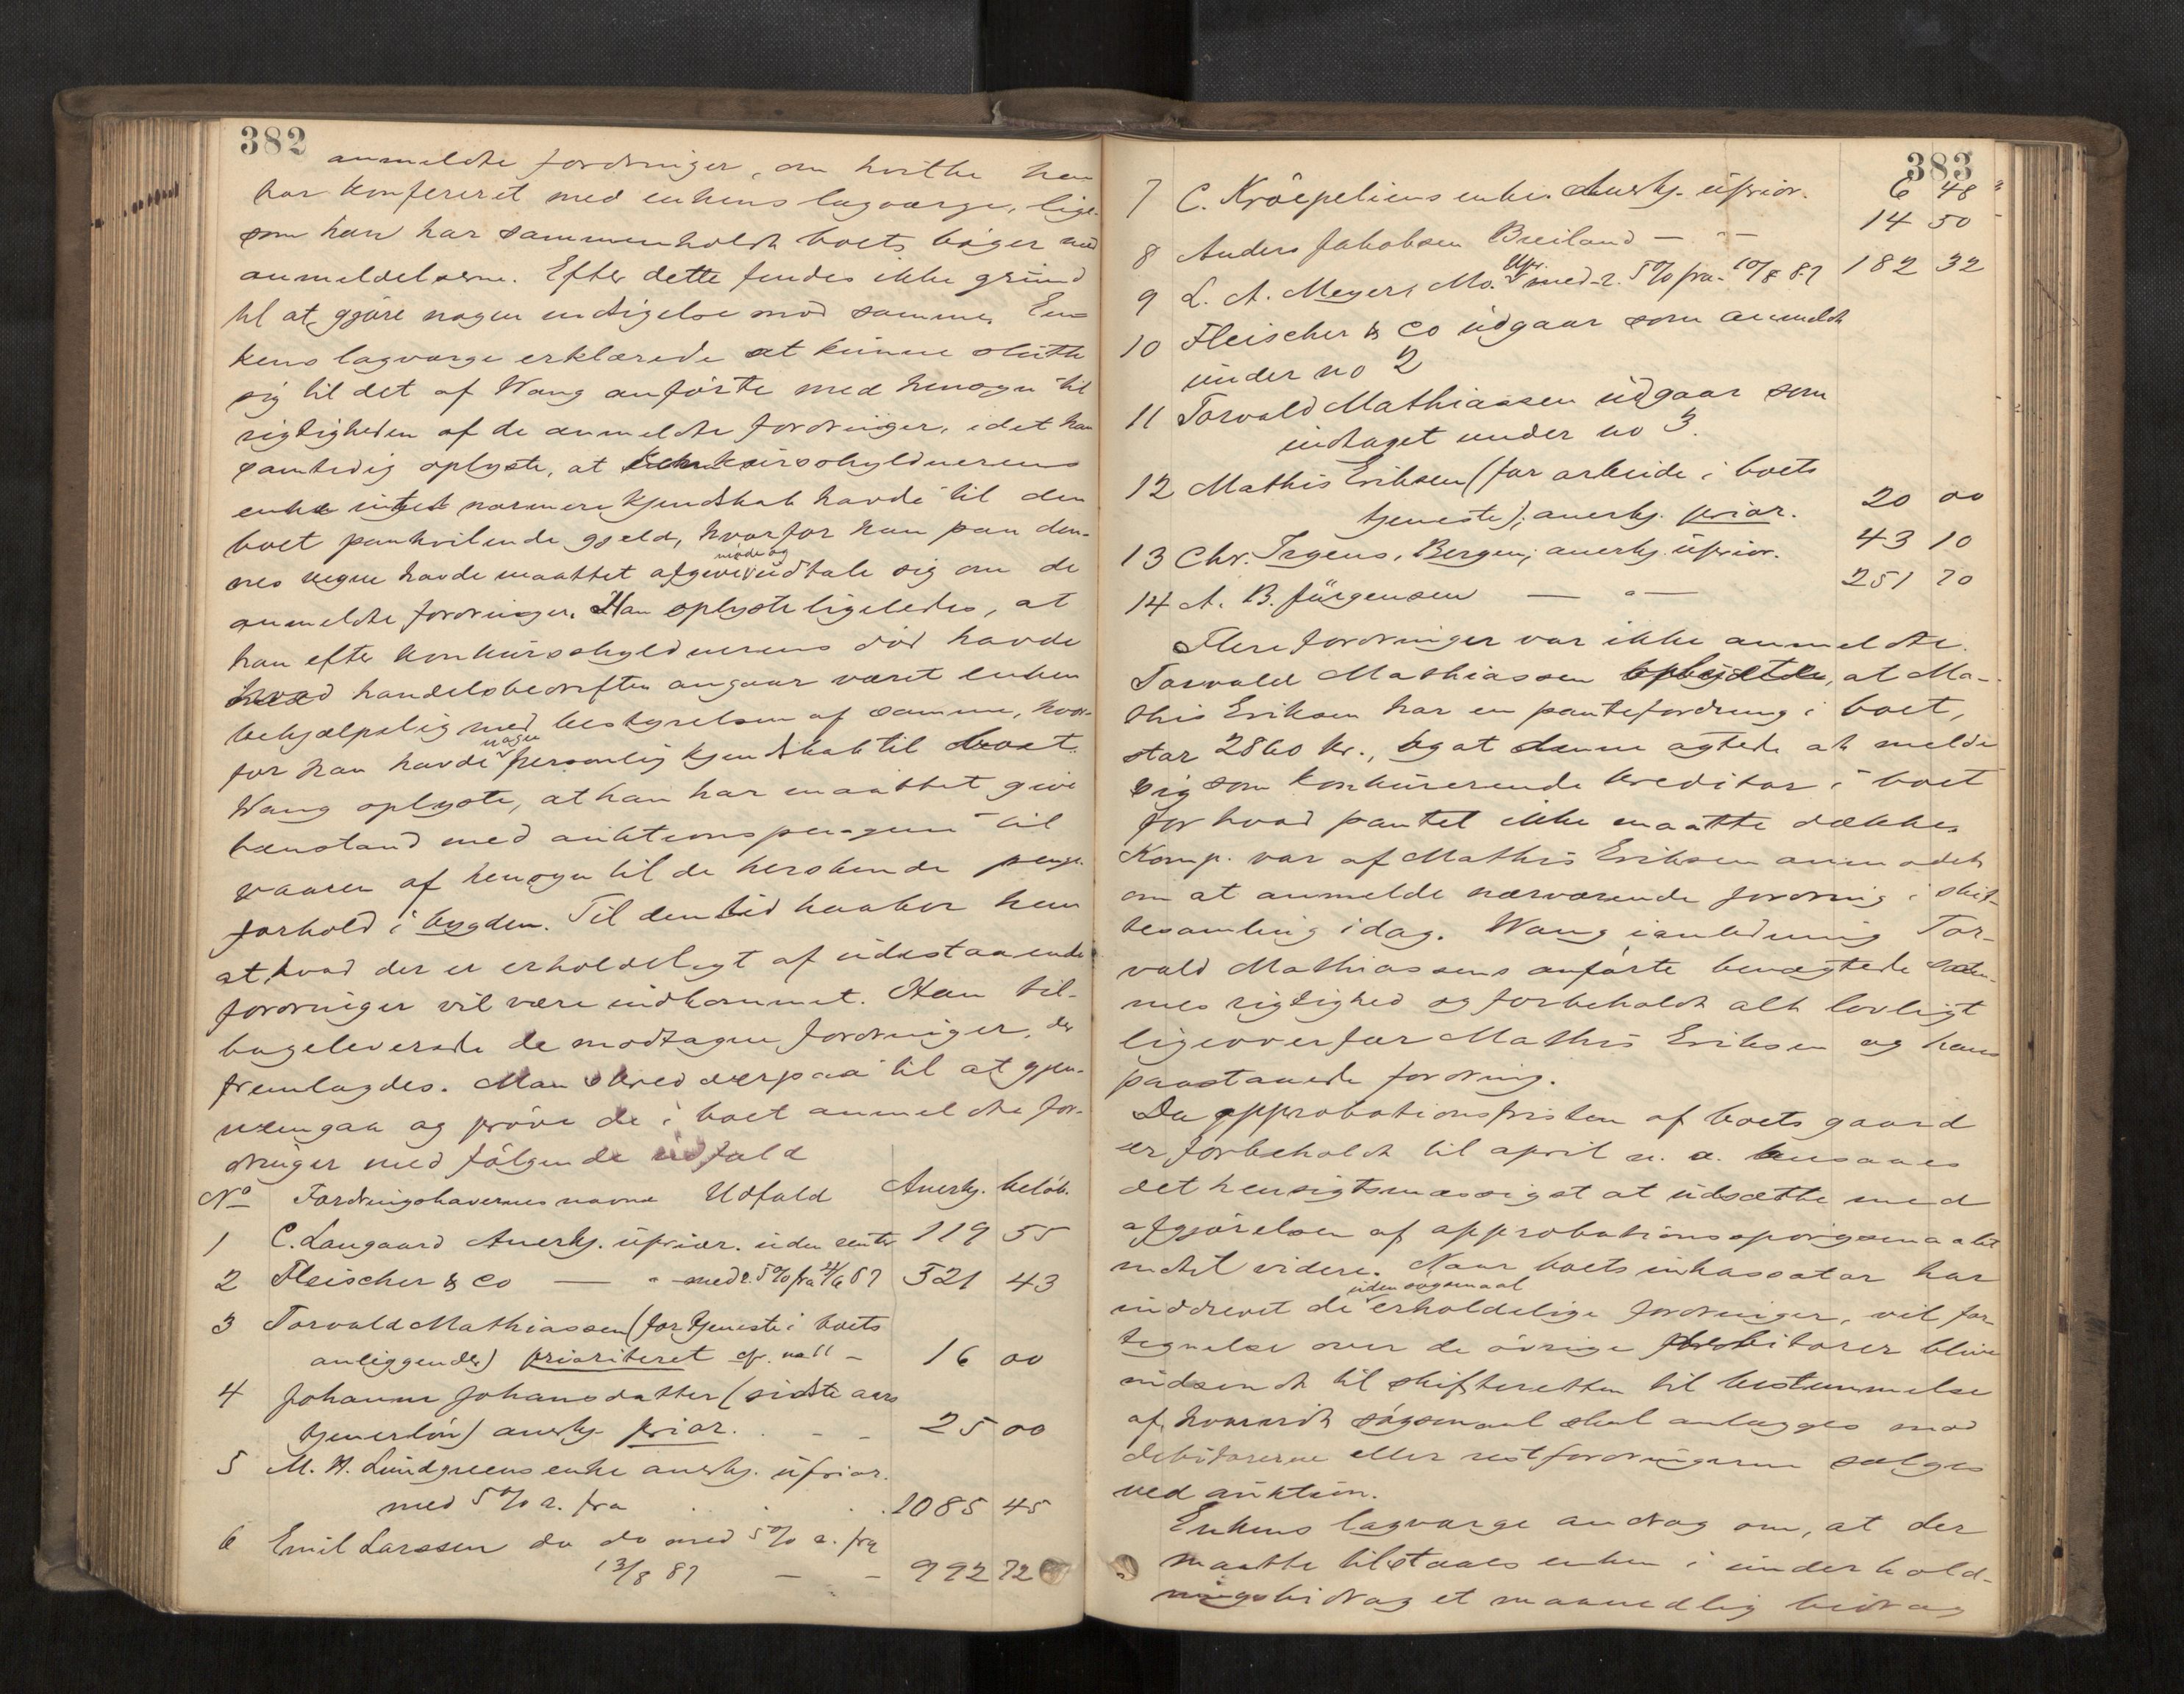 382
anmeldte fordringer, om hvilke han
har konfereret med enkens lagværge, lige-
som han har sammenholdt boets bøger med
anmeldelserne. Efter dette findes ikke grund
til at gjøre nogen indsigelse mod samme. En-
kens lagværge erklærede at kunne slutte
sig til det af Wang anførte med hensyn til
rigtigheden af de anmeldte fordringer, idet han
samtidig oplyste, at konkursskyldnerens
enke intet nærmere kjendskab havde til den
boet paahvilende gjæld, hvorfor han paa den-
nes vegne havde maattet møde og udtale sig om de
anmeldte fordringer. Han oplyste ligeledes, at
han efter konkursskyldnerens død havde
hvad handelsbedriften angaar været enken
behjælpelig med bestyrelsen af samme, hvor-
for han havde nogen personlig kjendskab til boet.
Wang oplyste, at han har maattet give
henstand med auktionspengene til
vaaren af hensyn til de herskende penge-
forhold i bygden. Til den tid haaber han
at hvad der er erholdeligt af udestaaende
fordringer vil være indkommet. Han til-
bageleverede de modtagne fordringer, der
fremlagdes. Man skred derpaa til at gjen-
nemgaa og prøve de i boet anmeldte for-
dringer med følgende udfald
No Fordringshavernes navne Udfald Anerkj. beløb.
1 C. Langaard Anerkj. uprior. uden renter 119 55
2 Fleischer & Co — " — med r. 5% fra 21/6 87 521 43
3 Torvald Mathiassen (for tjeneste i boets
anliggender) prioriteret cfr. no 11 — 16 00
4 Johanne Johansdatter (sidste aars
tjenerløn) anerkj. prior. . — — 25 00
5 M. H. Lundgreens enke anerkj. uprior.
med 5% r. fra . . . 1085 45
6 Emil Larssen do do med 5% r. fra
13/8 87 — — 992 72
383
7 C. Krøepeliens enke. Anerkj. uprior. 6 48
8 Anders Jakobsen Breiland — " — 14 50
9 L. A. Meyer, Mo. Upr. med r. 5% fra 10/8 87 182 32
10 Fleischer & Co udgaar som anmeldt
under no 2
11 Torvald Mathiassen udgaar som
indtaget under no 3.
12 Mathis Eriksen (for arbeide i boets
tjeneste); anerkj. prior. 20 00
13 Chr. Irgens, Bergen; anerkj. uprior. 43 10
14 A. B. Jürgensen — " — 251 70
Flere fordringer var ikke anmeldte.
Torvald Mathiassen oplyste, at Ma-
this Eriksen har en pantefordring i boet,
stor 2860 kr., og at denne agtede at melde
sig som konkurerende kreditor i boet
for hvad pantet ikke maatte dække.
Komp. var af Mathis Eriksen anmodet
om at anmelde nærværende fordring i skif-
tesamling idag. Wang i anledning Tor-
vald Mathiassens anførte benægtede den-
nes rigtighed og forbeholdt alt lovligt
ligeoverfor Mathis Eriksen og hans
paastaaede fordring.
Da approbationsfristen af boets gaard
er forbeholdt til april n. a. ansaaes
det hensigtsmæssigst at udsætte med
afgjørelsen af approbationsspørgsmaalet
indtil videre. Naar boets inkassator har
inddrevet de uden søgsmaal erholdelige fordringer, vil for-
tegnelse over de øvrige debitorer blive
indsendt til skifteretten til bestemmelse
af hvorvidt søgsmaal skal anlægges mod
debitorerne eller restfordringerne sælges
ved auktion.
Enkens lagværge androg om, at der
maatte tilstaaes enken i underhold-
ningsbidrag et maanedlig bidrag